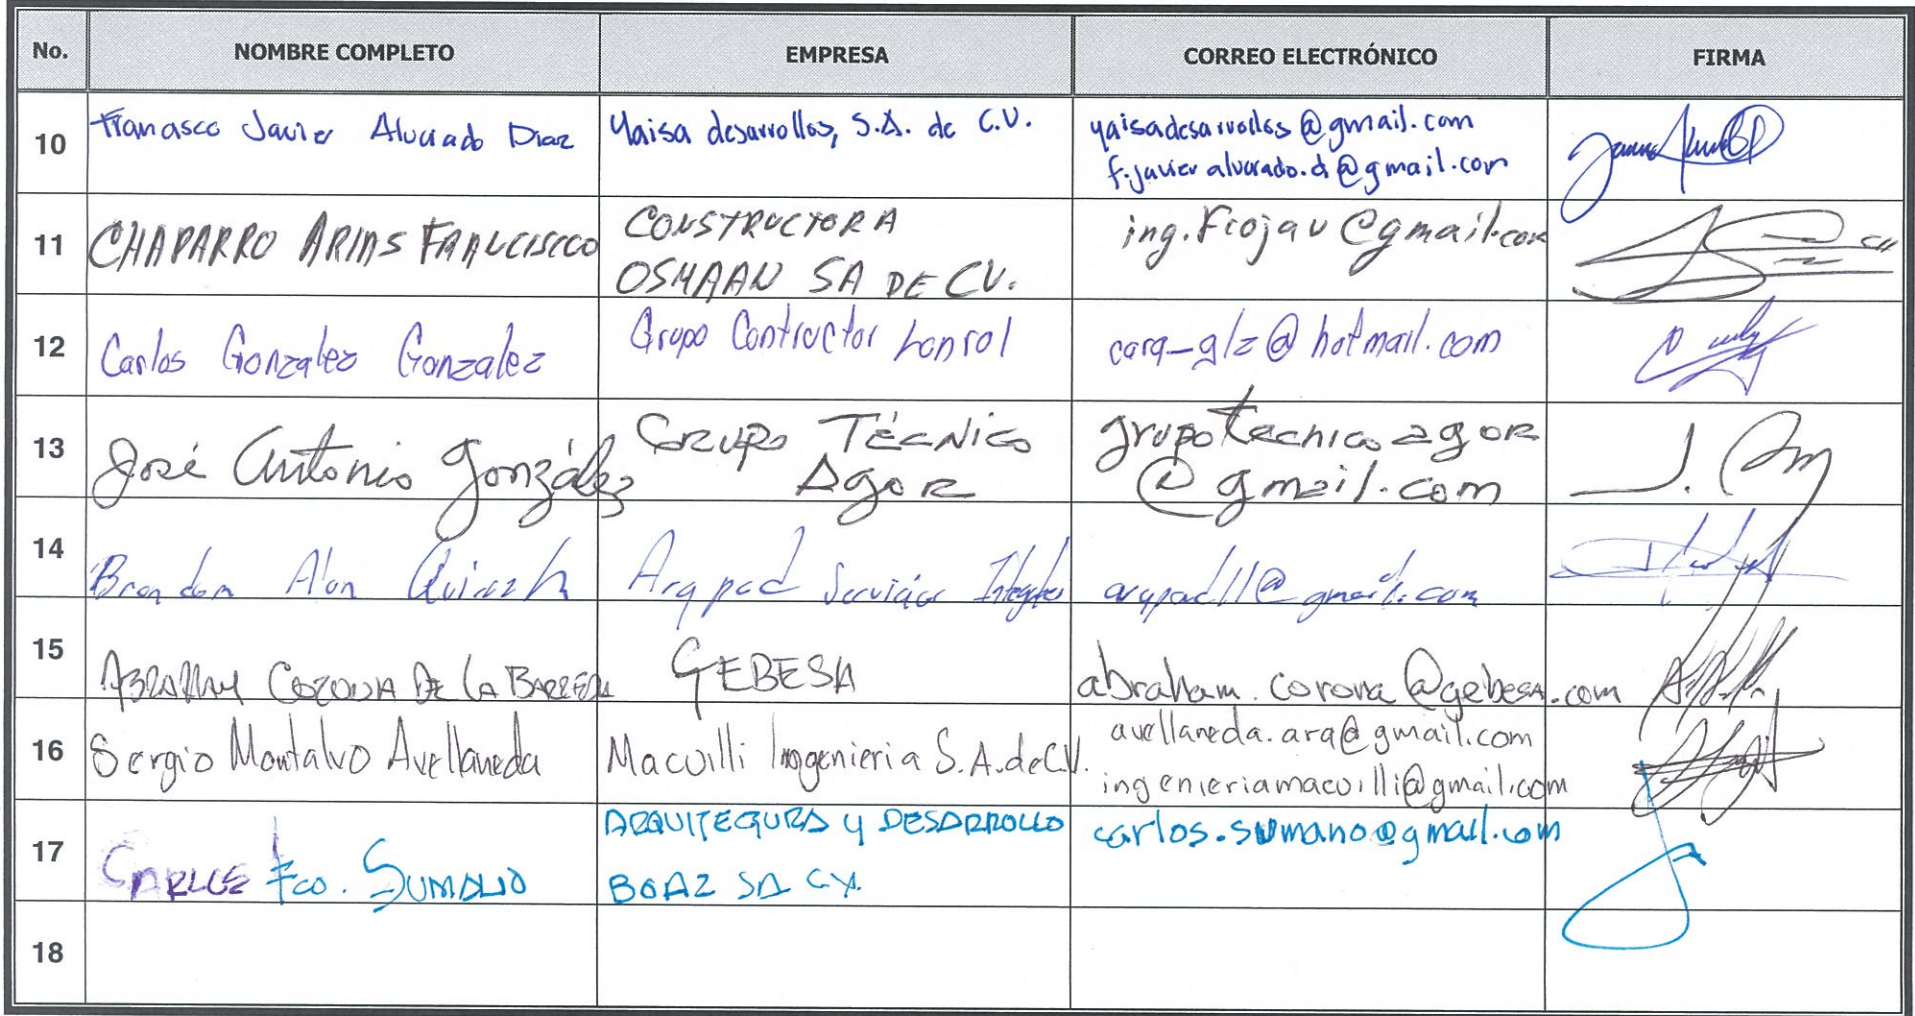 No. NOMBRE COMPLETO EMPRESA CORREO ELECTRÓNICO FIRMA
10 Francisco Javier Alvarado Diaz Yaisa desarrollos, S.A. de C.V. yaisadesarrollos@gmail.com
f.javier alvarado.d@gmail.com
11 CHAPARRO ARIAS FRANCISCO CONSTRUCTORA ing.Fcojav@gmail.com
OSMAAN SA DE CV.
12 Carlos Gonzalez Gonzalez Grupo Contructor Lonrol carq_glz@hotmail.com
13 José Antonio González GRUPO TÉCNICO grupotecnicoagor
AGOR @gmail.com
14 Brandon Alan Arqpad Servicios Integrales arqpad11@gmail.com
15 ABRAHAM CORONA DE LA BARRERA GEBESA abraham.corona@gebesa.com
16 Sergio Montalvo Avellaneda Macuilli Ingenieria S.A.deC.V. avellaneda.arq@gmail.com
ingenieriamacuilli@gmail.com
17 CARLOS Fco. SUMANO ARQUITECTURA y DESARROLLO carlos.sumano@gmail.com
BOAZ SA CV.
18